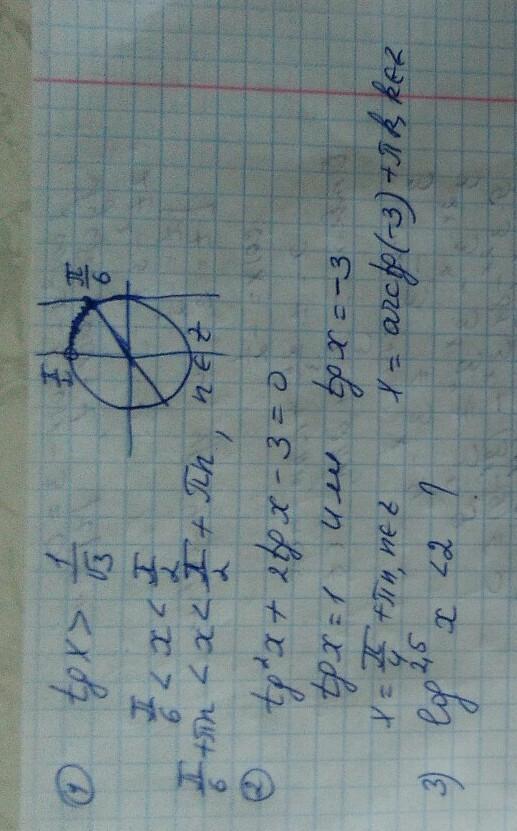 ① tg x > 1/√3
π/2
π/6
π/6 < x < π/2
π/6 + πn < x < π/2 + πn, n ∈ z
② tg²x + 2tg x - 3 = 0
tg x = 1 или tg x = -3
x = π/4 + πn, n∈z x = arctg(-3) + πk, k∈z
3) log x < 2 ?